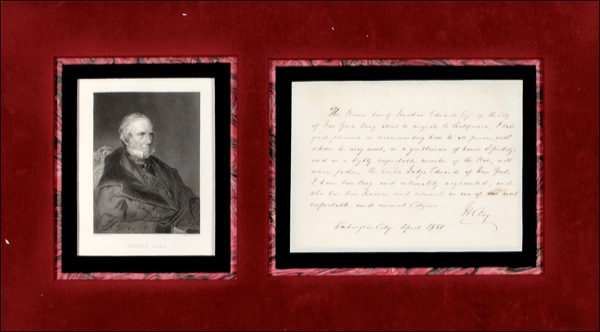 The Bearer hereof Jonathan Edwards Esqr. of the City
of New York being about to migrate to California, I take
great pleasure in recommending him to all persons with
whom he may meet, as a gentleman of honor & probity,
and as a highly respectable member of the Bar, with
whose father, the Judge Edwards of New York,
I have been long and intimately acquainted, and
who has been known and esteemed as one of most
respectable and eminent Citizens.
H. Clay
Washington City April 1850
HENRY CLAY